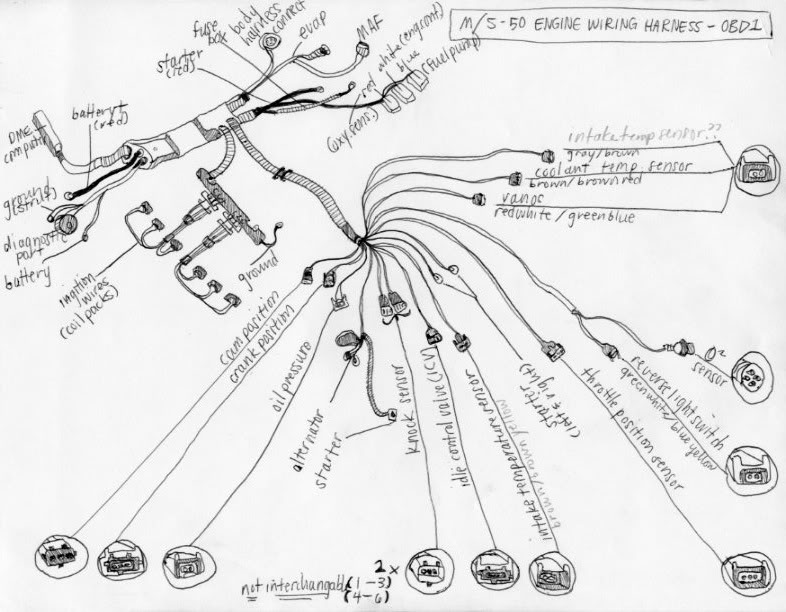 M/S-50 ENGINE WIRING HARNESS - OBD1
fuse
box
body
harness
connect
evap
MAF
starter
(red)
red white (eng cont)
blue
(fuel pump)
(oxy.sens.)
battery +
(red)
DME
computer
ground
(strut)
diagnostic
port
battery
ingition
wires
(coil packs)
ground
intake temp sensor??
gray/brown
coolant temp. sensor
brown/brown red
vanos
redwhite/greenblue
cam position
crank position
oil pressure
alternator
starter
knock sensor
idle control valve (ICV)
intake temperature sensor
brown/brown yellow
starter
(left & right)
throttle position sensor
reverse light switch
green white/blue yellow
O²
sensor
2x
not interchangable (1-3)
(4-6)